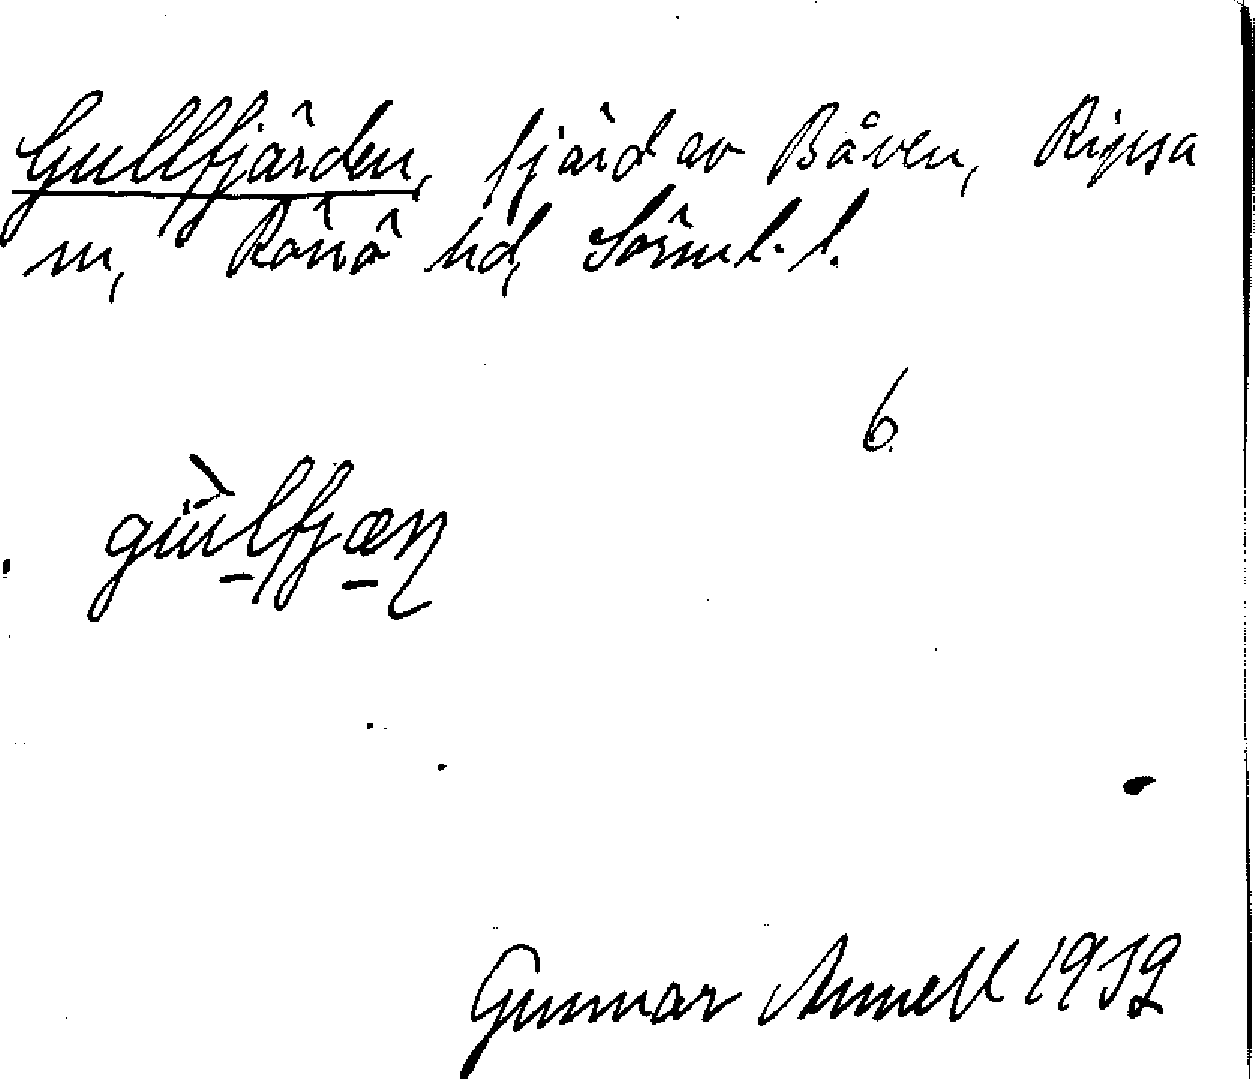 Gullfjärden, fjärd av Båven, Ripsa
sn, Rönö hd, Sörml. l.
6.
gu̇̀lfjæɳ
Gunnar Annell 1932